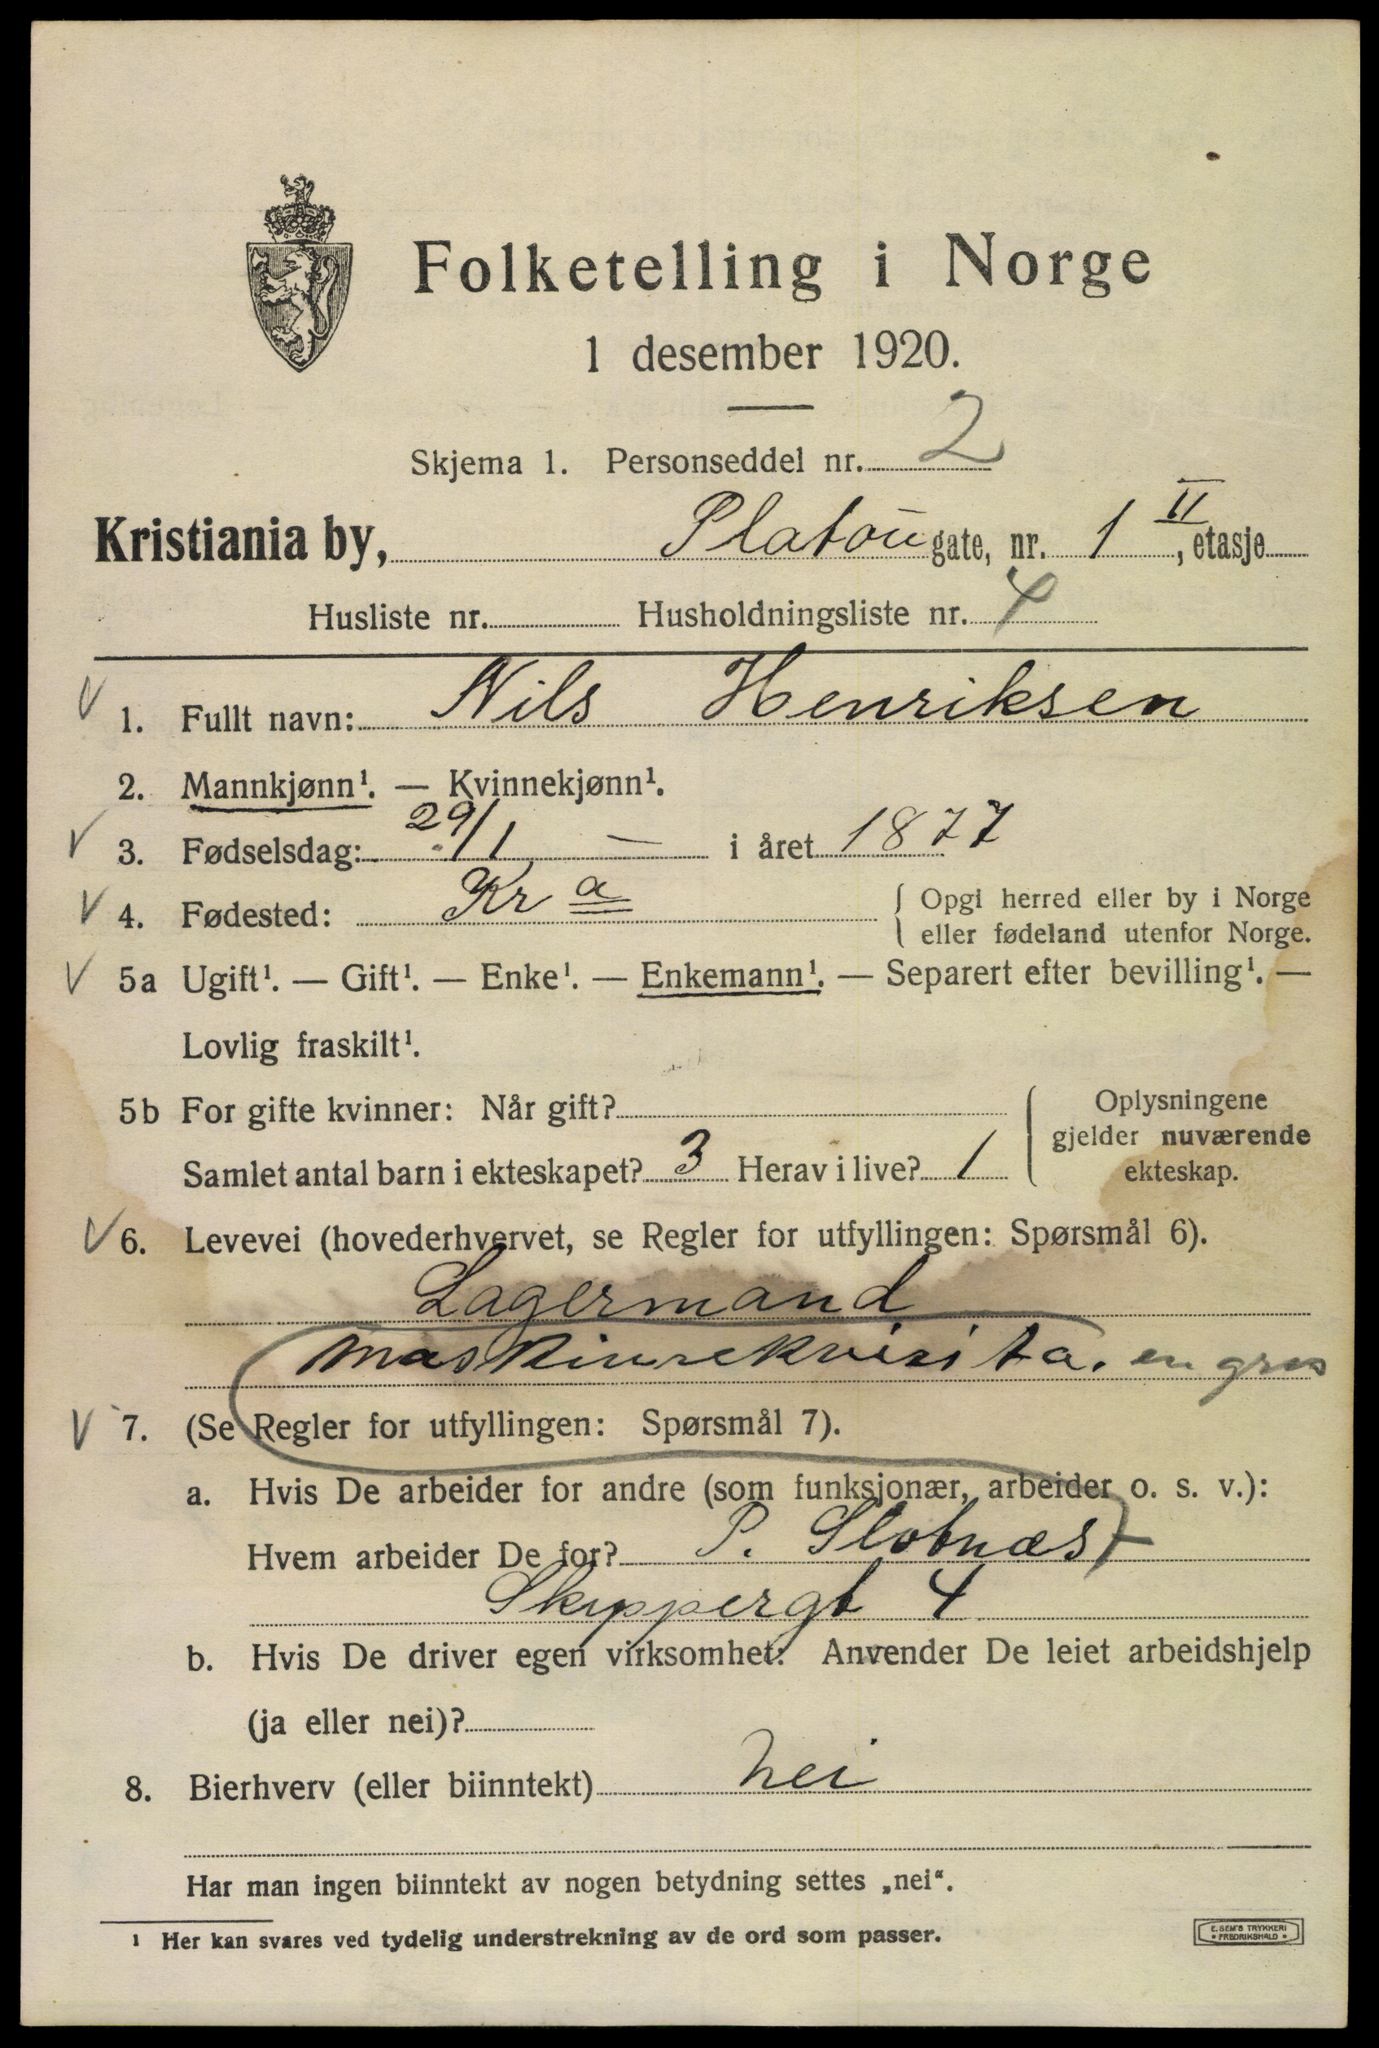 Folketelling i Norge
1 desember 1920.
Skjema 1. Personseddel nr. 2
Kristiania by, Platou gate, nr. 1 II, etasje
Husliste nr. Husholdningsliste nr. 4
1. Fullt navn: Nils Henriksen
2. Mannkjønn¹. — Kvinnekjønn¹.
3. Fødselsdag: 29/1 — i året 1877
4. Fødested: Kr a { Opgi herred eller by i Norge
eller fødeland utenfor Norge.
5a Ugift¹. — Gift¹. — Enke¹. — Enkemann¹. — Separert efter bevilling¹. —
Lovlig fraskilt¹.
5b For gifte kvinner: Når gift?
Samlet antal barn i ekteskapet? 3 Herav i live? 1
Oplysningene
gjelder nuværende
ekteskap.
6. Levevei (hovederhvervet, se Regler for utfyllingen: Spørsmål 6).
Lagermand
Maskinrekvisita. en gros
7. (Se Regler for utfyllingen: Spørsmål 7).
a. Hvis De arbeider for andre (som funksjonær, arbeider o. s. v.):
Hvem arbeider De for? P. Slotnæs
Skippergt 4
b. Hvis De driver egen virksomhet: Anvender De leiet arbeidshjelp
(ja eller nei)?
8. Bierhverv (eller biinntekt) nei
Har man ingen biinntekt av nogen betydning settes „nei“.
1 Her kan svares ved tydelig understrekning av de ord som passer.
E. SEM'S TRYKKERI
• FREDRIKSHALD •